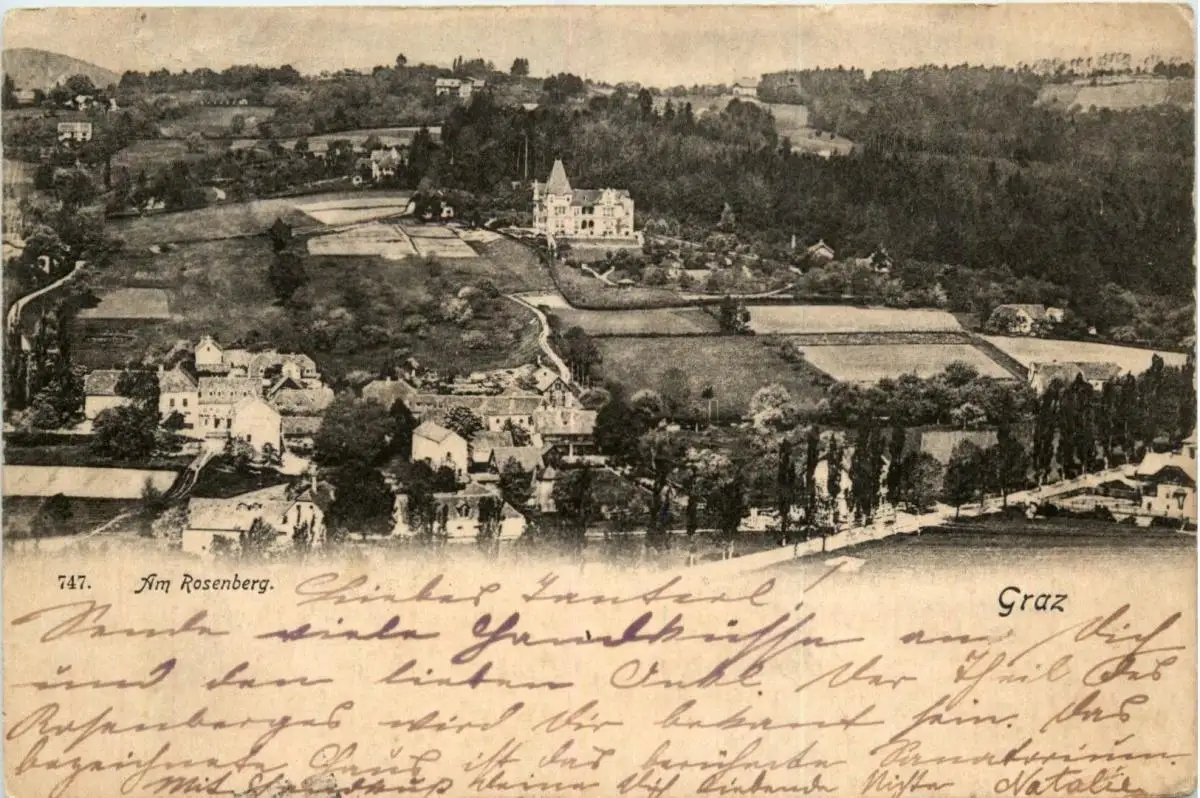 747. Am Rosenberg.
Graz
Liebes Tanterl!
Sende viele Handküsse an Dich
und den lieben Onkl Der Theil des
Rosenberges wird Dir bekant sein. Das
bezeichnete Haus ist das berühmte Sanatorium.
Mit kleine Dich liebende Nichte Natalie